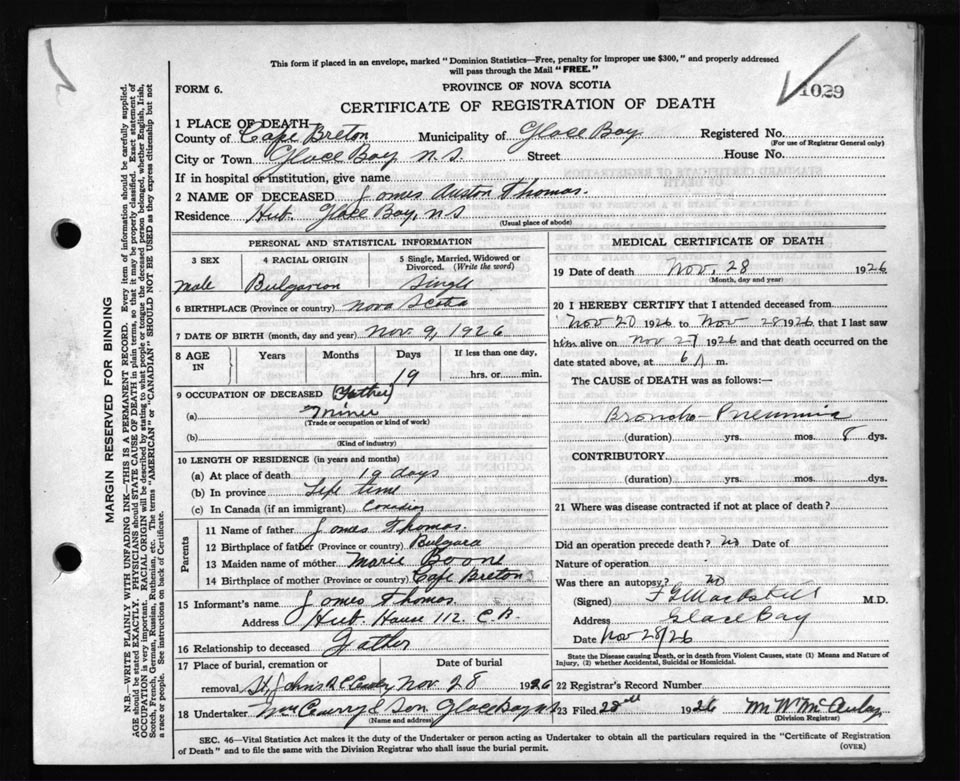 This form if placed in an envelope, marked "Dominion Statistics—Free, penalty for improper use $300," and properly addressed
will pass through the Mail "FREE."
FORM 6.
PROVINCE OF NOVA SCOTIA
1029
CERTIFICATE OF REGISTRATION OF DEATH
1 PLACE OF DEATH
County of Cape Breton Municipality of Glace Bay Registered No.
(For use of Registrar General only)
City or Town Glace Bay N.S. Street House No.
If in hospital or institution, give name
2 NAME OF DECEASED James Auston Thomas.
Residence Hub. Glace Bay, N.S
(Usual place of abode)
PERSONAL AND STATISTICAL INFORMATION
3 SEX 4 RACIAL ORIGIN 5 Single, Married, Widowed or Divorced. (Write the word)
male Bulgarian Single
6 BIRTHPLACE (Province or country) Nova Scotia
7 DATE OF BIRTH (month, day and year) Nov. 9, 1926
8 AGE IN Years Months Days If less than one day,
19 hrs. or min.
9 OCCUPATION OF DECEASED (Father)
(a) miner
(Trade or occupation or kind of work)
(b)
(Kind of industry)
10 LENGTH OF RESIDENCE (in years and months)
(a) At place of death 19 days
(b) In province Life time
(c) In Canada (if an immigrant)
Parents
11 Name of father James Thomas.
12 Birthplace of father (Province or country) Bulgara
13 Maiden name of mother Marie Boone
14 Birthplace of mother (Province or country) Cape Breton
15 Informant's name James Thomas
Address Hub. House 112. C.B.
16 Relationship to deceased Father
17 Place of burial, cremation or Date of burial
removal St. Johns Nov. 28 1926
18 Undertaker & Son Glace Bay NS
(Name and address)
MEDICAL CERTIFICATE OF DEATH
19 Date of death Nov. 28 1926
(Month, day and year)
20 I HEREBY CERTIFY that I attended deceased from
Nov 20 1926 to Nov 28 1926, that I last saw
him alive on Nov 27 1926 and that death occurred on the
date stated above, at 6 A m.
The CAUSE of DEATH was as follows:—
Broncho-Pneumonia
(duration) yrs. mos. 8 dys.
CONTRIBUTORY
(duration) yrs. mos. dys.
21 Where was disease contracted if not at place of death?
Did an operation precede death? no Date of
Nature of operation
Was there an autopsy? no
(Signed) M.D.
Address Glace Bay
Date Nov 28/26
State the Disease causing Death, or in death from Violent Causes, state (1) Means and Nature of
Injury, (2) whether Accidental, Suicidal or Homicidal.
22 Registrar's Record Number
23 Filed 28th 1926 M W McAulay
(Division Registrar)
SEC. 46—Vital Statistics Act makes it the duty of the Undertaker or person acting as Undertaker to obtain all the particulars required in the "Certificate of Registration
of Death" and to file the same with the Division Registrar who shall issue the burial permit.
(OVER)
MARGIN RESERVED FOR BINDING
N.B.—WRITE PLAINLY WITH UNFADING INK—THIS IS A PERMANENT RECORD. Every item of information should be carefully supplied.
AGE should be stated EXACTLY. PHYSICIANS should STATE CAUSE OF DEATH in plain terms, so that it may be properly classified. Exact statement of
OCCUPATION is very important. RACIAL ORIGIN will be described by stating to what people or tongue the deceased person belonged, whether English, Irish,
Scotch, French, German, Russian, Ruthenian, etc. The terms "AMERICAN" or "CANADIAN" SHOULD NOT BE USED as they express citizenship but not
a race or people. See instructions on back of Certificate.